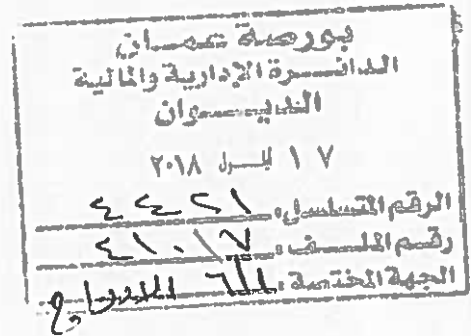 بورصة عمان
الدائرة الإدارية والمالية
الديوان
١٧ أيلول ٢٠١٨
الرقم المتسلسل: ٤٤٢١
رقم الملف: ٤١٠١٧
الجهة المختصة: